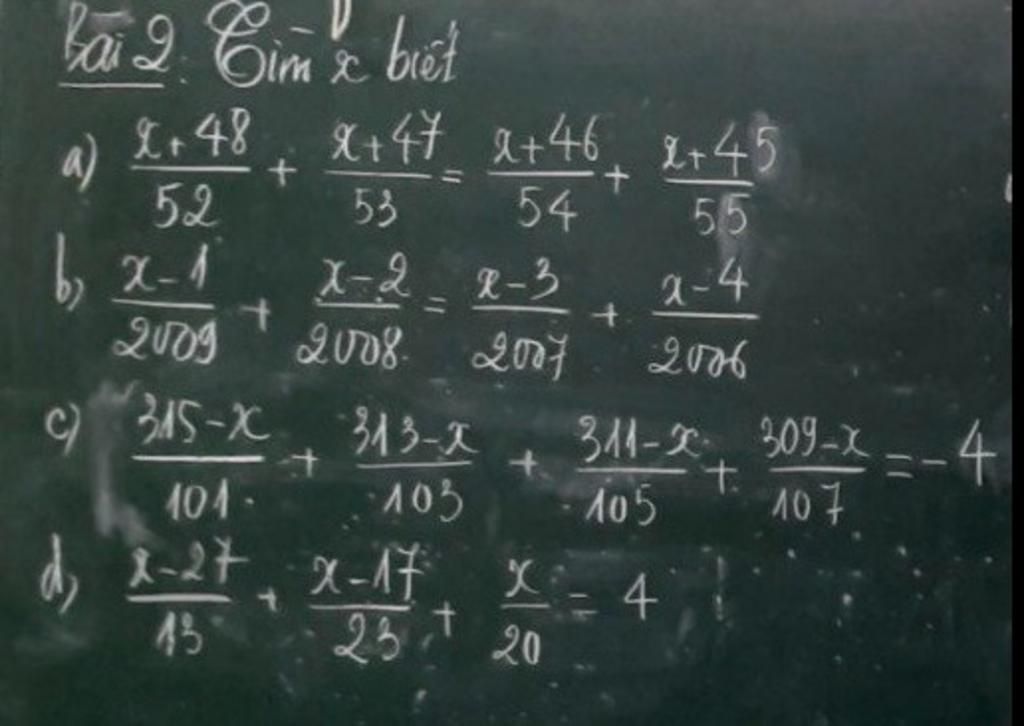 Bài 2: Tìm x biết
a) \frac{x+48}{52} + \frac{x+47}{53} = \frac{x+46}{54} + \frac{x+45}{55}
b) \frac{x-1}{2009} + \frac{x-2}{2008} = \frac{x-3}{2007} + \frac{x-4}{2006}
c) \frac{315-x}{101} + \frac{313-x}{103} + \frac{311-x}{105} + \frac{309-x}{107} = -4
d) \frac{x-27}{13} + \frac{x-17}{23} + \frac{x}{20} = 4